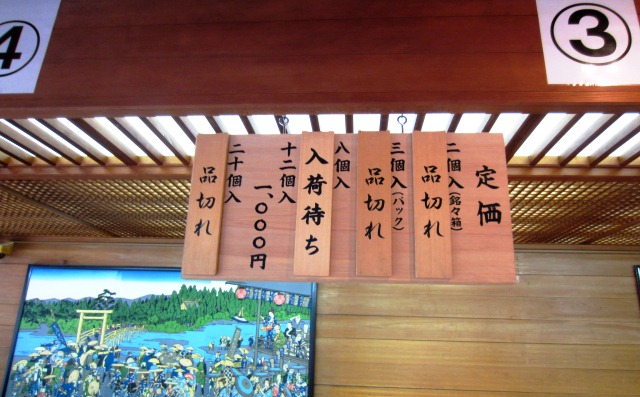 ④
③
定価
二個入(銘々箱)
品切れ
三個入(パック)
品切れ
八個入
入荷待ち
十二個入
一、〇〇〇円
二十個入
品切れ